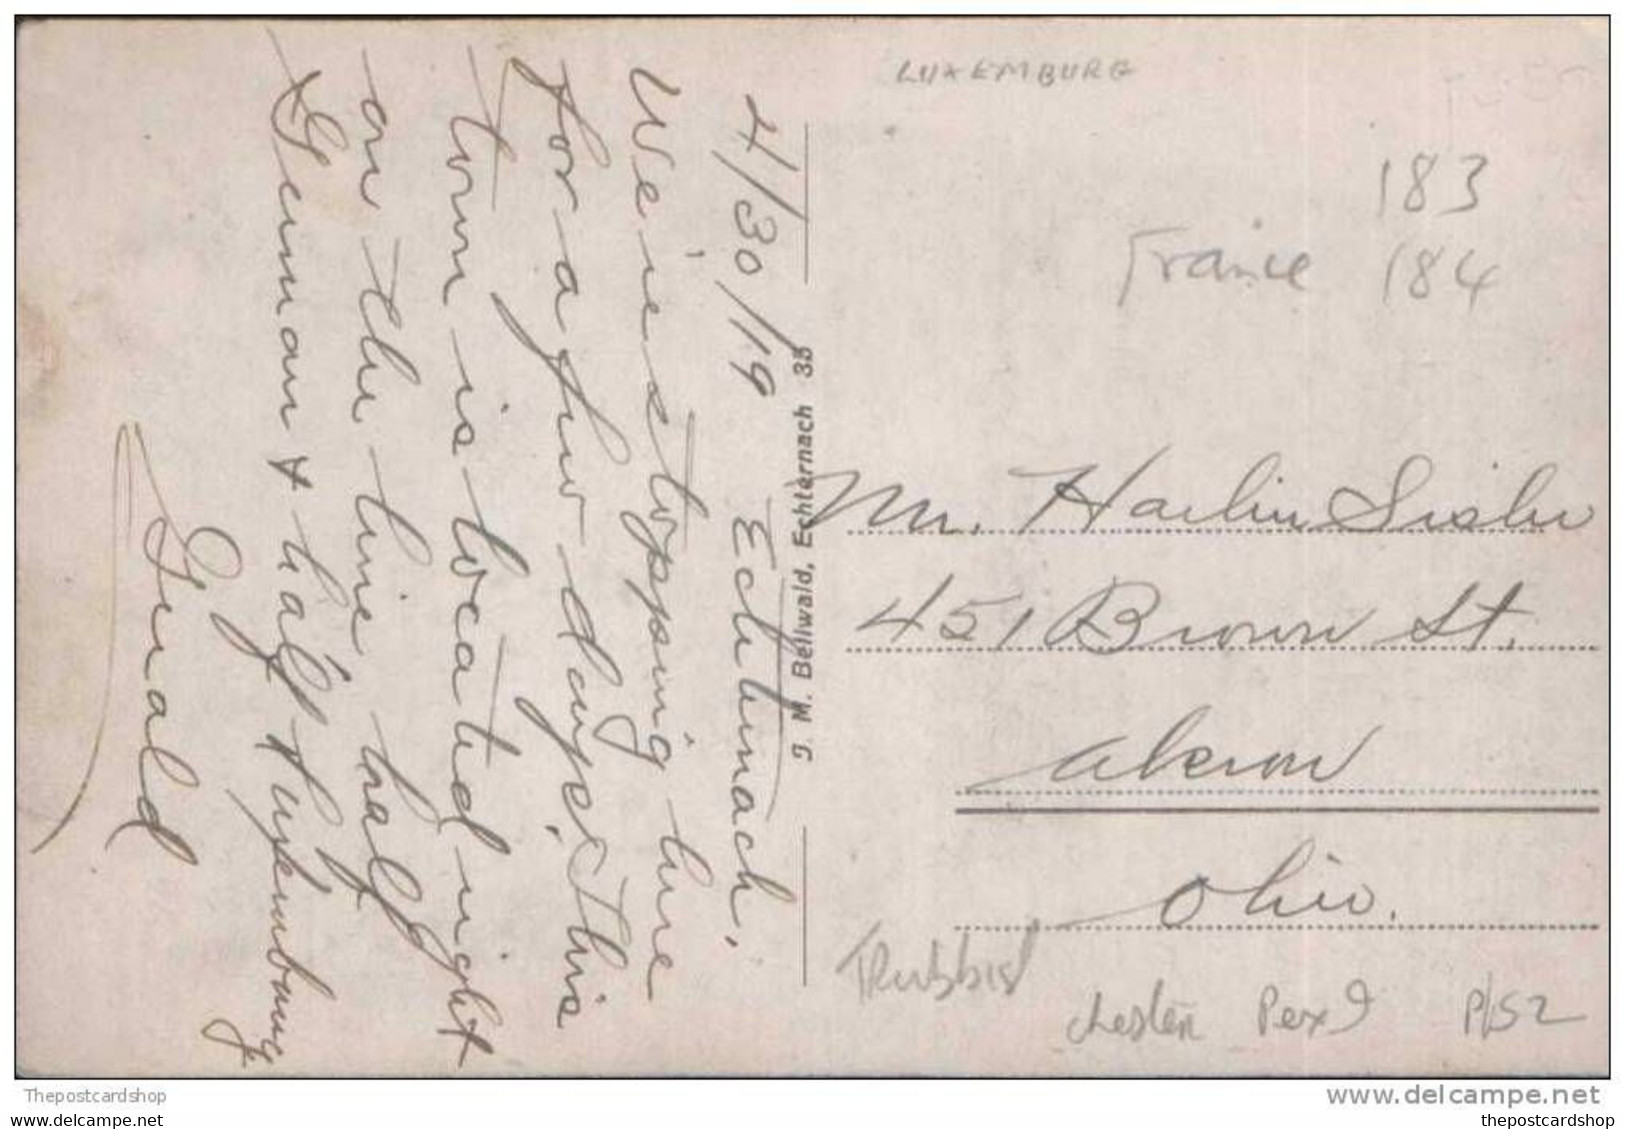 LUXEMBURG
183
France 184
4/30/19 Echternach,
We're stopping here
for a few days. This
town is located right
on the line half
German & half Luxemburg
Gerald
J. M. Bellwald, Echternach 35
Mr. Harlin Sisler
451 Brown St.
Akron
Ohio.
chester Pex 9 P/S2
Thepostcardshop
www.delcampe.net
thepostcardshop